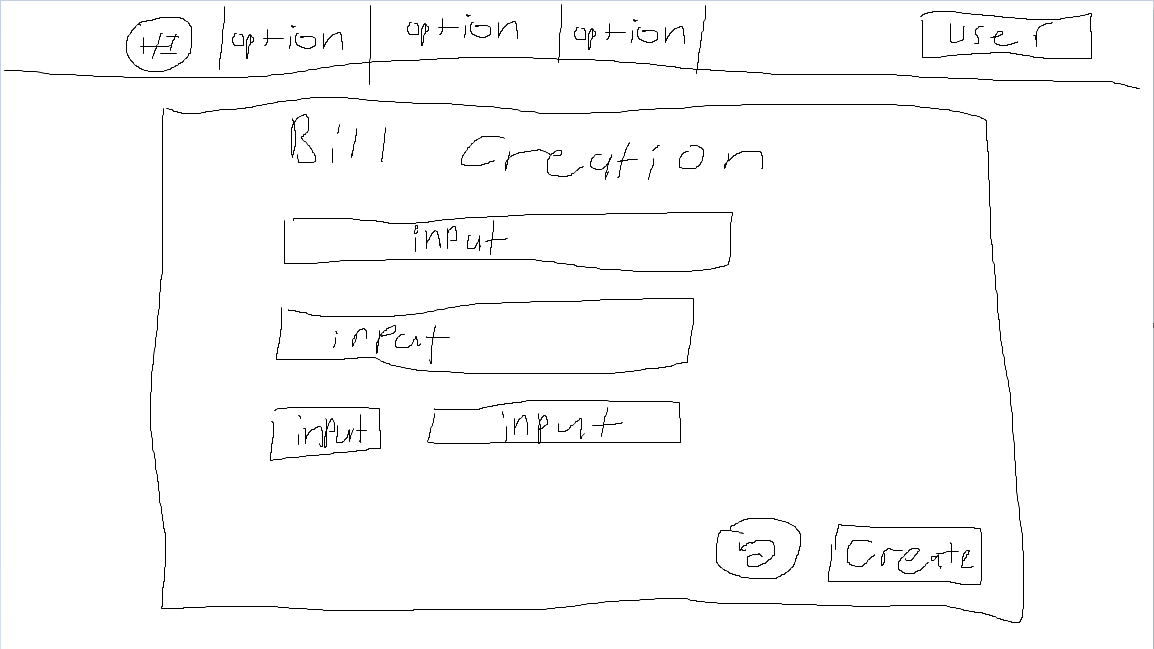 option option option user
Bill Creation
input
input
input input
Create